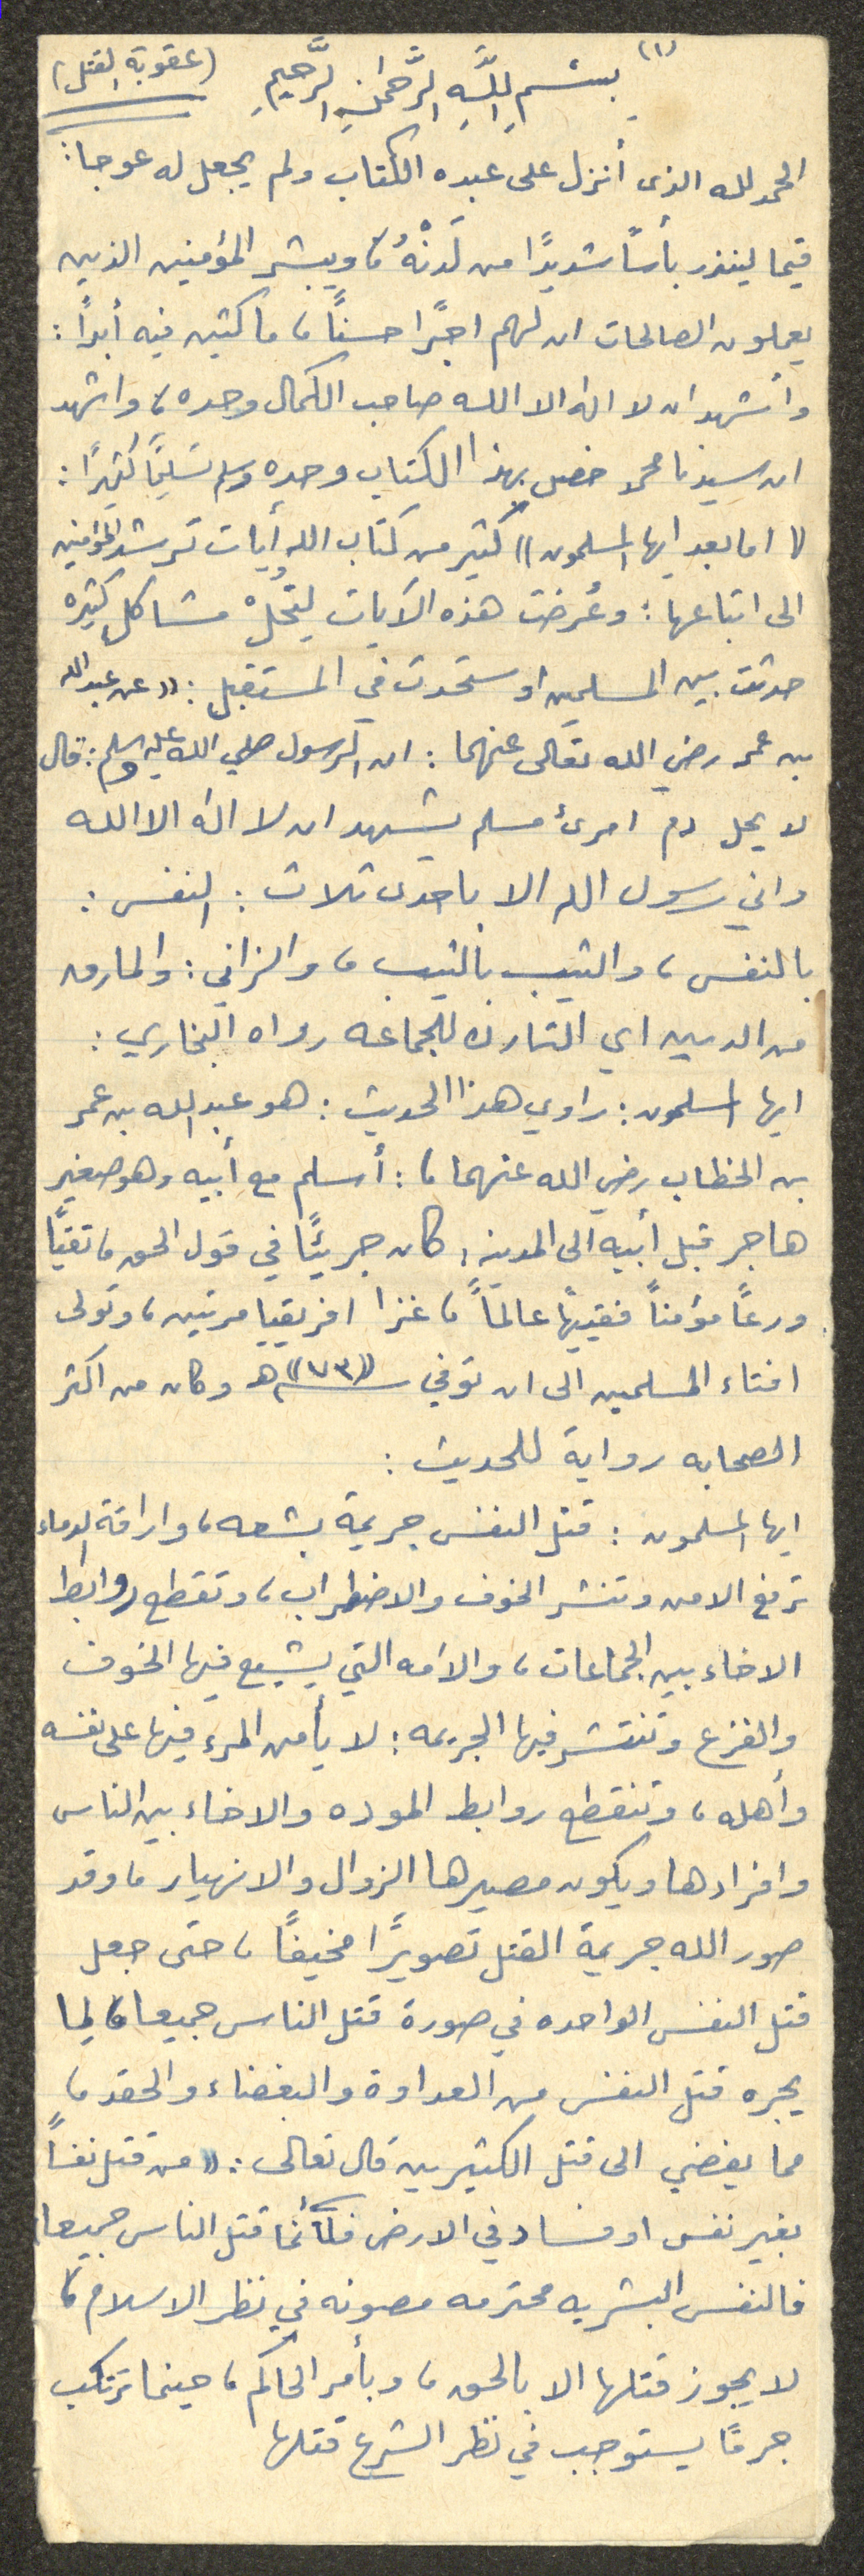 (١)
بِسْمِ اللَّهِ الرَّحْمٰنِ الرَّحِيمِ (عقوبة القتل)
الحمد لله الذى أنزل على عبده الكتاب ولم يجعل له عوجا:
قيما لينذر بأسًا شديدًا من لَدُنْهُ، ويبشر المؤمنين الذين
يعملون الصالحات ان لهم اجرًا حسنًا، ماكثين فيه أبدًا:
وأشهد ان لا اله الا الله صاحب الكمال وحده، واشهد
ان سيدنا محمد خصى بهذا الكتاب وحده وسلم تسليمًا كثيرًا:
(( اما بعد ايها المسلمون )) كثير من كتاب الله أيات ترشد المؤمنين
الى اتباعها: وعُرضت هذه الآيات لِتَحُلْ مشاكل كثيره
حدثت بين المسلمين او ستحدث في المستقبل: ((عن عبد الله
بن عمر رضي الله تعالى عنهما: ان الرسول صلي الله عليه وسلم: قال
لا يحل دم امرئ مسلم يشهد ان لا اله الا الله
واني رسول الله الا باحدى ثلاث: النفس:
بالنفس، والثيب بالثيب، والزاني: والمارق
من الدين اي التارك للجماعه رواه البخاري:
ايها المسلمون: راوي هذا الحديث: هو عبد الله بن عمر
بن الخطاب رضي الله عنهما،: أسلم مع أبيه وهو صغير
هاجر قبل أبيه الى المدينه، كان جريئًا في قول الحق، تقيًا
ورعًا مؤمنًا فقيهًا عالمًا، غزا افريقيا مرتين، وتولى
افتاء المسلمين الى ان توفي سنة ((٧٣)) هـ وكان من اكثر
الصحابه رواية للحديث:
ايها المسلمون: قتل النفس جريمة بشعه، واراقة الدماء
ترفع الامن وتنشر الخوف والاضطراب، وتقطع روابط
الاخاء بين الجماعات، والامه التي يشيع فيها الخوف
والفزع وتنتشر فيها الجريمه: لا يأمن المرء فيها على نفسه
وأهله، وتنقطع روابط الموده والاخاء بين الناس
وافرادها ويكون مصيرها الزوال والانهيار، وقد
صور الله جريمة القتل تصويرًا مخيفًا، حتى جعل
قتل النفس الواحده في صورة قتل الناس جميعا، لِما
يجره قتل النفس من العداوة والبغضاء والحقد،
مما يفضي الى قتل الكثيرين قال تعالى: ((من قتل نفسًا
بغير نفس او فساد في الارض فكأنما قتل الناس جميعا،
فالنفس البشريه محترمه مصونه في نظر الاسلام،
لا يجوز قتلها الا بالحق، وبأمر الحاكم، حينما ترتكب
جرمًا يستوجب في نظر الشرع قتلها